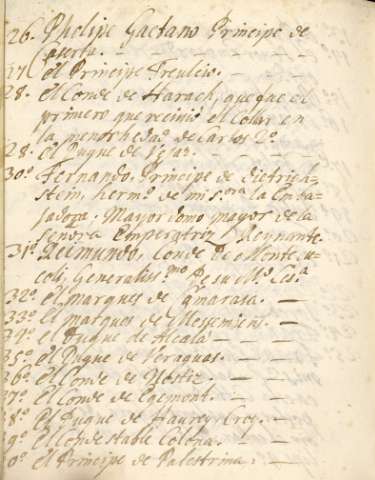 26. Phelipe Gaetano Principe de
Caserta. — — — — —
27 el Principe Treulcio. — — —
28. el Conde de Harach, que fue el
primero que recivió el Colar en
la menor hedad de Carlos 2º
28. el Duque de — —
30º Fernando, Principe de Dietrich-
stein, hermº de mi sra la Emba-
jadora, Mayordomo mayor de la
señora Emperatriz Reynante.
31º Reimundo, Conde de Montecu-
coli, Generalissmo De su Md Cesa
32º el marques de Camarasa. —
33º el marques de —
34º el Duque de Alcala — — —
35º el Duque de Veraguas. — —
36º el Conde de Nostiz. — — —
37º el Conde de Egemont. — —
38º el Duque de Haurey, Croy. —
9º el Condestable Colona. — —
0º el Principe de Palestrina. — —